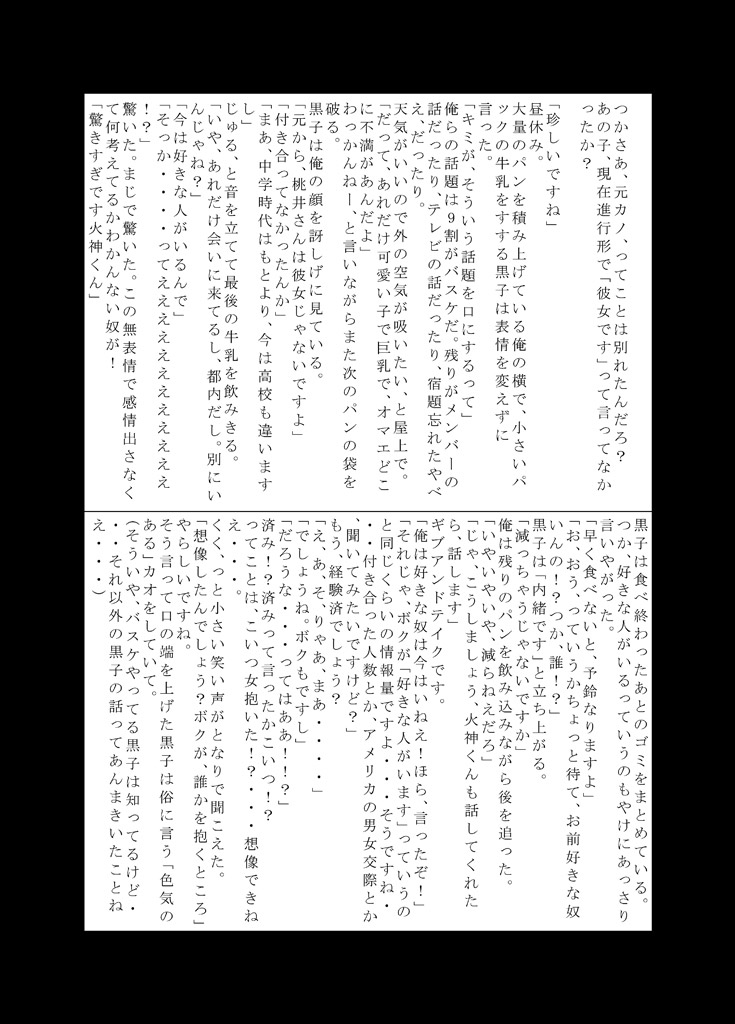 つかさあ、元カノ、ってことは別れたんだろ？
あの子、現在進行形で「彼女です」って言ってなか
ったか？
「珍しいですね」
昼休み。
大量のパンを積み上げている俺の横で、小さいパ
ックの牛乳をすする黒子は表情を変えずに
言った。
「キミが、そういう話題を口にするって」
俺らの話題は９割がバスケだ。残りがメンバーの
話だったり、テレビの話だったり、宿題忘れたやべ
え、だったり。
天気がいいので外の空気が吸いたい、と屋上で。
「だって、あれだけ可愛い子で巨乳で、オマエどこ
に不満があんだよ」
わっかんねー、と言いながらまた次のパンの袋を
破る。
黒子は俺の顔を訝しげに見ている。
「元から、桃井さんは彼女じゃないですよ」
「付き合ってなかったんか」
「まあ、中学時代はもとより、今は高校も違います
し」
じゅる、と音を立てて最後の牛乳を飲みきる。
「いや、あれだけ会いに来てるし、都内だし。別にい
んじゃね？」
「今は好きな人がいるんで」
「そっか・・・・ってえええええええええええええ
！？」
驚いた。まじで驚いた。この無表情で感情出さなく
て何考えてるかわかんない奴が！
「驚きすぎです火神くん」
黒子は食べ終わったあとのゴミをまとめている。
つか、好きな人がいるっていうのもやけにあっさり
言いやがった。
「早く食べないと、予鈴なりますよ」
「お、おう、っていうかちょっと待て、お前好きな奴
いんの！？つか、誰！？」
黒子は「内緒です」と立ち上がる。
「減っちゃうじゃないですか」
俺は残りのパンを飲み込みながら後を追った。
「いやいやいや、減らねえだろ」
「じゃ、こうしましょう、火神くんも話してくれた
ら、話します」
ギブアンドテイクです。
「俺は好きな奴は今はいねえ！ほら、言ったぞ！」
「それじゃ、ボクが「好きな人がいます」っていうの
と同じくらいの情報量ですよ・・・そうですね・
・・付き合った人数とか、アメリカの男女交際とか
、聞いてみたいですけど？」
もう、経験済でしょう？
「え、あ、そ、りゃあ、まあ・・・・」
「でしょうね。ボクもですし」
「だろうな・・・ってはああ！！？」
済み！？済みって言ったかこいつ！？
ってことは、こいつ女抱いた！？・・・想像できね
え・・・。
くく、っと小さい笑い声がとなりで聞こえた。
「想像したんでしょう？ボクが、誰かを抱くところ」
やらしいですね。
そう言って口の端を上げた黒子は俗に言う「色気の
ある」カオをしていて。
（そういや、バスケやってる黒子は知ってるけど・
・・それ以外の黒子の話ってあんまきいたことね
え・・・）